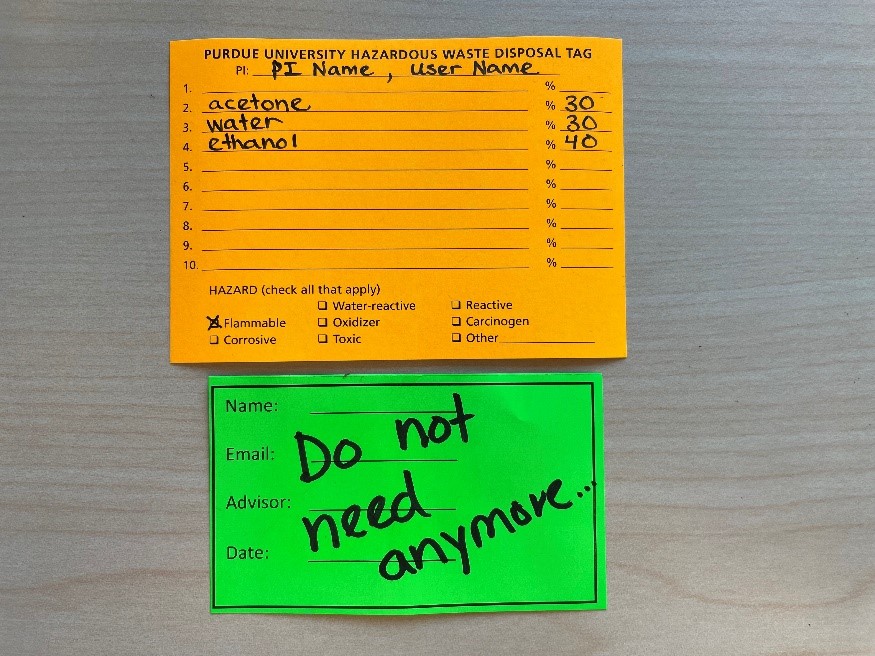 PURDUE UNIVERSITY HAZARDOUS WASTE DISPOSAL TAG
PI: PI Name, User Name
1. %
2. acetone % 30
3. water % 30
4. ethanol % 40
5. %
6. %
7. %
8. %
9. %
10. %
HAZARD (check all that apply)
Water-reactive Reactive
Flammable Oxidizer Carcinogen
Corrosive Toxic Other
Name:
Email:
Advisor:
Date:
Do not
need
anymore...